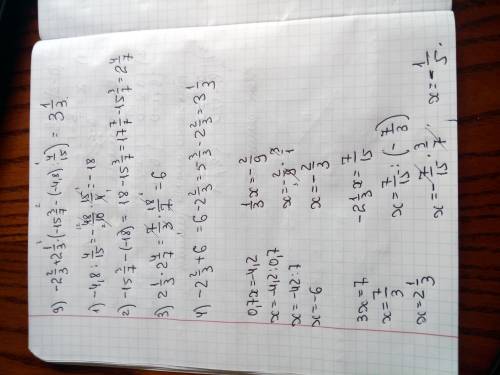 9) -2 2/3 + 2 1/3 · (-15 3/7 - (-4,8) : 4/15) = 3 1/3.
1) -4,8 : 4/15 = -48/10 · 15/4 = -18
2) -15 3/7 - (-18) = 18 - 15 3/7 = 17 7/7 - 15 3/7 = 2 4/7
3) 2 1/3 · 2 4/7 = 7/3 · 18/7 = 6
4) -2 2/3 + 6 = 6 - 2 2/3 = 5 3/3 - 2 2/3 = 3 1/3
0,7x = -4,2
x = -4,2 : 0,7
x = -42 : 7
x = -6
1/3 x = -2/9
x = -2/9 · 3/1
x = -2/3
3x = 7
x = 7/3
x = 2 1/3
-2 1/3 x = 7/15
x = 7/15 : (-7/3)
x = -7/15 · 3/7
x = -1/5.